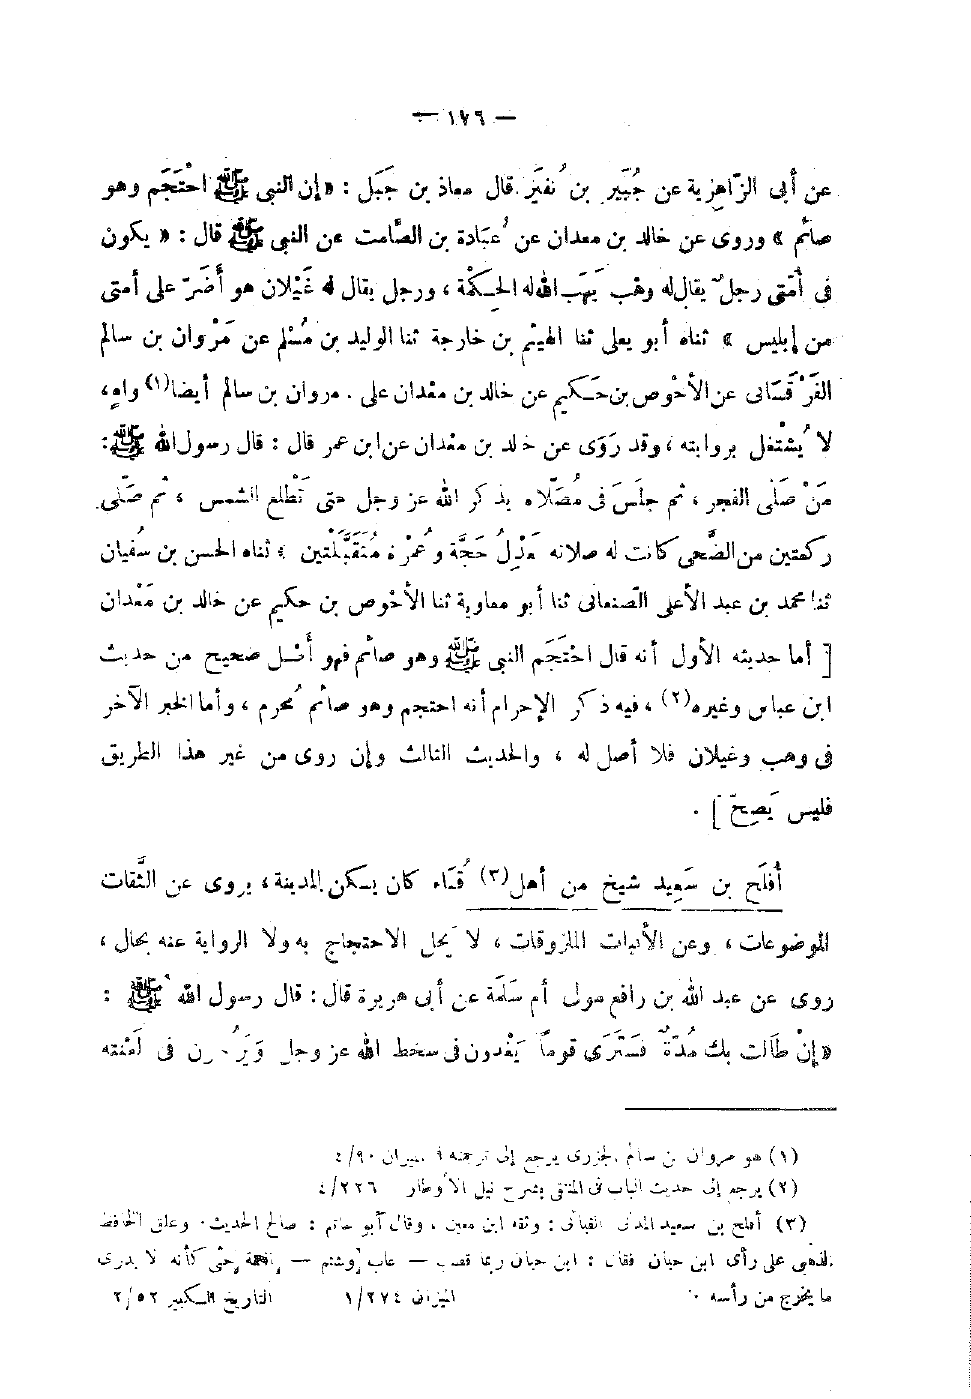 — ١٧٦ —
عن أبى الزّاهِرية عن جُبَير بن نُفَير قال معاذ بن جَبَل : « إن النبى ﷺ احْتَجَم وهو
صائم » وروى عن خالد بن معدان عن عُبَادة بن الصَّامت عن النبى ﷺ قال : « يكون
فى أمّتى رجلٌ يقال له وهب يَهَب الله له الحِكمْة ، ورجل يقال له غَيْلان هو أضَرّ على أمتى
من إبليس » ثناه أبو يعلى ثنا الهيثم بن خارجة ثنا الوليد بن مُسْلم عن مَرْوان بن سالم
القَرْقَسَانى عن الأحْوص بن حَكيم عن خالد بن معْدان على . مروان بن سالم أيضا(١) واهٍ،
لا يُشْتغل بروايته ، وقد رَوَى عن خالد بن معْدان عن ابن عمر قال : قال رسول الله ﷺ :
مَنْ صَلَّى الفجر ، ثم جلَسَ فى مُصَلّاه يذكر الله عز وجل حتى تَطْلع الشمس ، ثم صَلّى
ركعتين من الضُّحى كانت له صلاته عَدْلُ حَجَّة وعُمْرة مُتَقَبَّلَتين » ثناه الحسن بن سُفيان
ثنا محمد بن عبد الأعلى الصّنعانى ثنا أبو معاوية ثنا الأحْوص بن حكيم عن خالد بن مَعْدان
[ أما حديثه الأول أنه قال احْتَجَم النبى ﷺ وهو صائم فهو أصْل صحيح من حديث
ابن عباس وغيره(٢) ، فيه ذكر الإحرام أنه احتجم وهو صائم مُحرم ، وأما الخبر الآخر
فى وهب وغيلان فلا أصل له ، والحديث الثالث وإن روى من غير هذا الطريق
فليس يَصِحّ ] .
أَفلَح بن سَعِيد شيخ من أهل(٣) قُبَاء كان يسكن المدينة ، يروى عن الثِّقات
الموضوعات ، وعن الأثبات الملزوقات ، لا يَحل الاحتجاج به ولا الرواية عنه بحال ،
روى عن عبد الله بن رافع مولى أم سَلَمَة عن أبى هريرة قال : قال رسول الله ﷺ :
« إنْ طاَلت بك مُدّةٌ فَسَتَرَى قوماً يَغْدون فى سخط الله عز وجل وَيَرُحون فى لَعْنته
(١) هو مروان بن سالم الجزرى يرجع إلى ترجمته فى الميزان ٤/٩٠
(٢) يرجع إلى حديث الباب فى المنتقى بشرح نيل الأوطار ٤/٢٢٦
(٣) أفلح بن سعيد المدنى القبائى : وثقه ابن معين ، وقال أبو حاتم : صالح الحديث . وعلق الحافظ
الذهبى على رأى ابن حبان فقال : ابن حبان ربما قصب — عاب وشتم — الثقة حتى كأنه لا يدرى
ما يخرج من رأسه . الميزان ١/٢٧٤ التاريخ الكبير ٢/٥٢